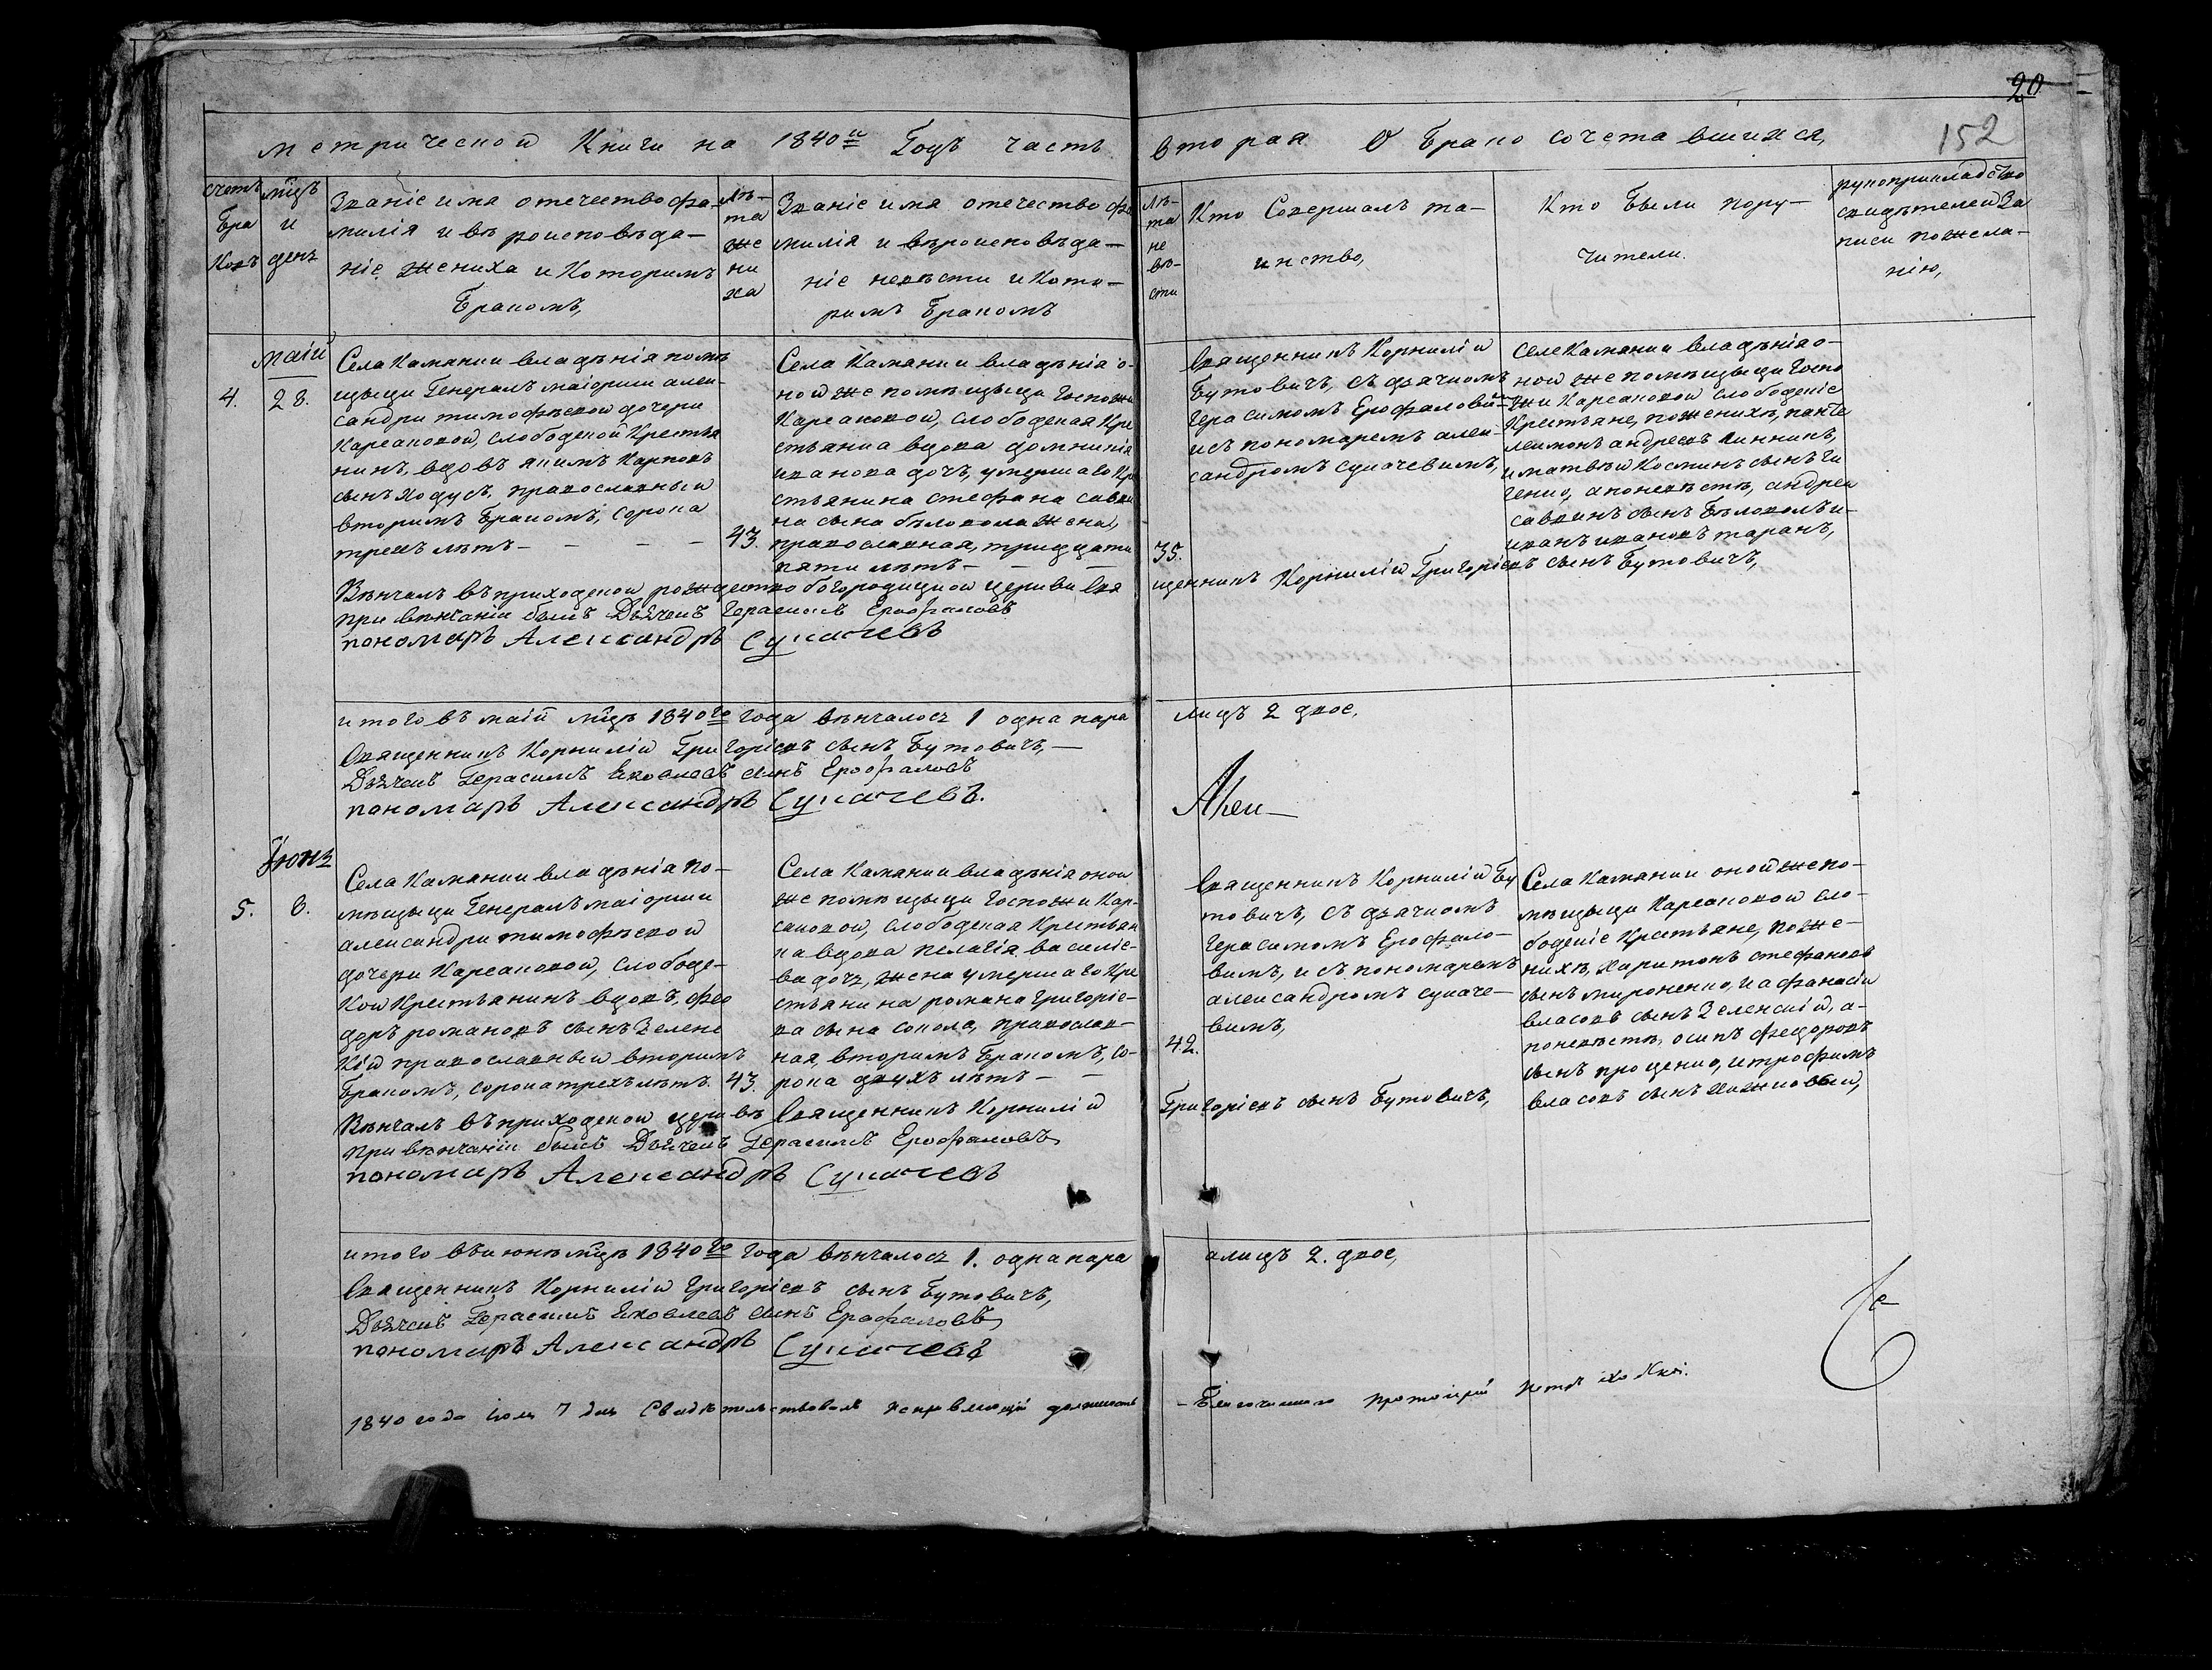 20
152
метрической Книги на 1840й Годъ часть вторая О Брако сочетавшихся,
счетъ
Бра
ковъ
мцъ
и
день
Званіе имя отечество фа-
милія и вѣроисповѣда-
ніе жениха и Которимъ
Бракомъ,
лѣ-
та
же
ни
ха
Званіе имя отечество фа
милія и вѣроисповѣда-
ніе невѣсти и Кото-
римъ Бракомъ
лѣ-
та
не
вѣ-
сти
Кто Совершалъ та-
инство,
Кто Были пору-
чители.
рукоприкладство
свидѣтелей За
писи по жела-
нію,
маій
4.
28.
Села Камянки владѣнія помѣ
щыци Генералъ маіорши алек-
сандри тимофѣевой дочери
Карсановой, слободской Крестья
нинъ, вдовъ якимъ Карповъ
сынъ Ходусъ, православный
вторимъ Бракомъ, сорока
трехъ лѣтъ - - - -
43.
Села Камянки владѣнія о-
ной же помѣщыци Госпожи
Карсановой, слободская Кре
стьянка вдова домникія
иванова дочъ, умершаго Кре
стьянина стефана савви
на сына бѣлокола жена,
православная, тридцати
пяти лѣтъ - - -
35.
Священникъ Корнилій
Бутовичъ, съ дячкомъ
Герасимомъ Ерофаловим
и съ пономаремъ алек-
сандромъ сукачевимъ,
Селе Камянки владѣнія о-
ной же помѣщыци Госпо
жи Карсановой слободскіе
Крестьяне, по женихѣ, панте
леимонъ андреевъ винникъ,
и матвѣй Косминъ сынъ
а по невѣстѣ, андрей
саввинъ сынъ Бѣлоколъ и-
иванъ ивановъ таранъ,
Вѣнчалъ въ приходской рождество богородицкой церкви Священникъ Корнилій Григоріевъ сынъ Бутовичъ,
при венчаніи былъ Дьячекъ Герасимъ Ерофаловъ
пономарь Александръ Сукачевъ
итого въ маій мцѣ 1840го года вѣнчалось 1 одна пара лицъ 2 двое,
Священникъ Корнилій Григоріевъ сынъ Бутовичъ, -
Дьячекъ Герасимъ Яковлевъ сынъ Ерофаловъ
пономарь Александръ Сукачевъ.
Июнь
5.
8.
Села Камянки владѣнія по-
мѣщыци Генералъ маіорши
александри тимофѣевой
дочери Карсановой, слободс-
кой Крестьянинъ вдовъ, фео
доръ романовъ сынъ Зеленс
кій православный вторимъ
Бракомъ, сорока трехъ лѣтъ.
43.
Села Камянки владѣнія оной
же помѣщыци Госпожи Кар-
сановой, слободская Крестьян
ка вдова пелагія василіе-
ва дочъ, жена умершаго Кре
стьянина романа григоріе-
ва сына сокола, православ-
ная, вторимъ Бракомъ, со-
рока двухъ лѣтъ - -
42.
Священникъ Корнилій Бу
товичъ, съ дячкомъ
Герасимомъ Ерофало-
вимъ, и съ пономаремъ
александромъ сукаче-
вимъ,
Села Камянки оной же по-
мѣщыци Карсановой сло-
бодскіе Крестьяне, по же-
нихѣ, харитонъ стефановъ
сынъ мироненко, и афанасій
власовъ сынъ Зеленскій, а-
по невѣстѣ, осипъ федоровъ
сынъ проценко, и трофимъ
власовъ сынъ
Вѣнчалъ въ приходской церквѣ Священникъ Корнилій Григоріевъ сынъ Бутовичъ,
при венчаніи былъ Дьячекъ Герасимъ Ерофаловъ
пономарь Александръ Сукачевъ
итого въ июнѣ мцѣ 1840го года вѣнчалось 1. одна пара а лицъ 2. двое,
Священникъ Корнилій Григоріевъ сынъ Бутовичъ,
Дьячекъ Герасимъ Яковлевъ сынъ Ерофаловъ
пономарь Александръ Сукачевъ
1840 года 7 дня Свидѣтельствовалъ исправляющій должность - Благочиннаго протоіерей Петръ